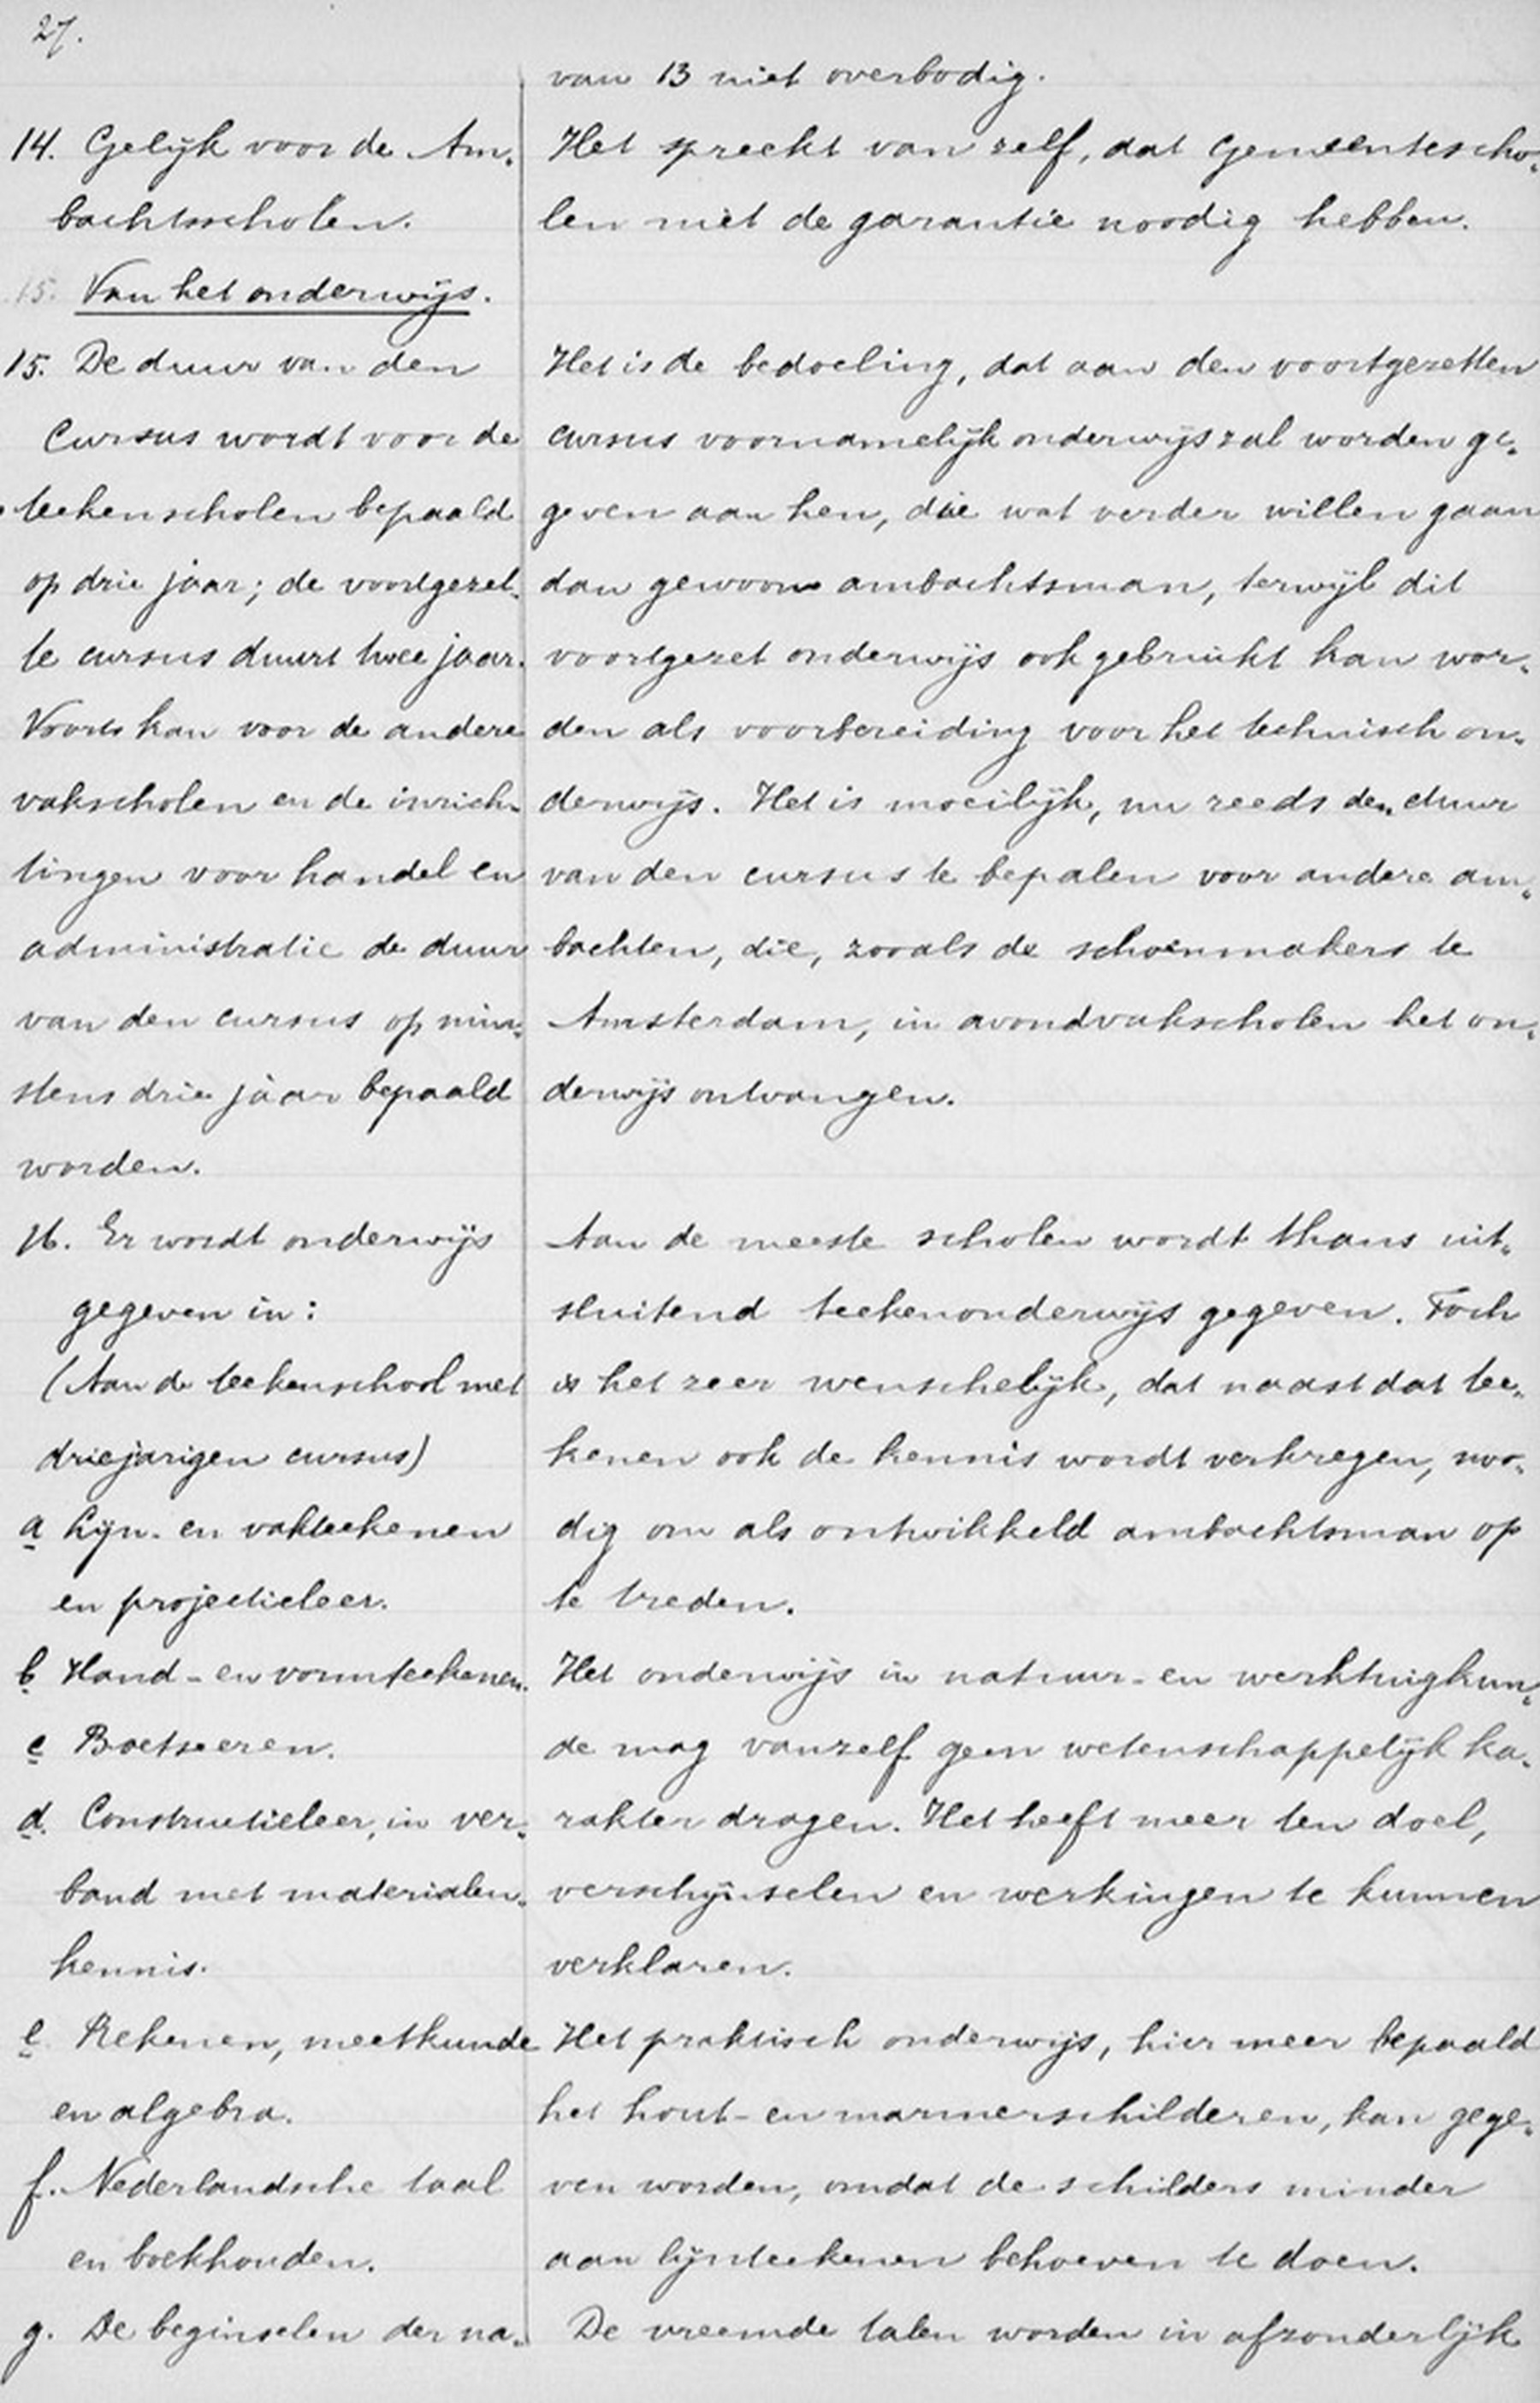 27.
14. Gelijk voor de Am-
bachtsscholen.
15. Van het onderwijs.
15. De duur van den
Cursus wordt voor de
teekenscholen bepaald
op drie jaar; de voortgezet-
te cursus duurt twee jaar.
Voorts kan voor de andere
vakscholen en de inrich-
tingen voor handel en
administratie de duur
van den cursus op min-
stens drie jaar bepaald
worden.
16. Er wordt onderwijs
gegeven in:
(Aan de teekenschool met
driejarigen cursus)
a Lijn- en vakteekenen
en projectieleer.
b Hand- en vormteekenen.
c Boetseeren.
d. Constructieleer, in ver-
band met materialen-
kennis.
e Rekenen, meetkunde
en algebra.
f. Nederlandsche taal
en boekhouden.
g. De beginselen der na-
van 13 niet overbodig.
Het spreekt van zelf, dat Gemeentescho-
len niet de garantie noodig hebben.
Het is de bedoeling, dat aan den voortgezetten
cursus voornamelijk onderwijs zal worden ge-
geven aan hen, die wat verder willen gaan
dan gewoon ambachtsman, terwijl dit
voortgezet onderwijs ook gebruikt kan wor-
den als voorbereiding voor het technisch on-
derwijs. Het is moeilijk, nu reeds den duur
van den cursus te bepalen voor andere am-
bachten, die, zooals de schoenmakers te
Amsterdam, in avondvakscholen het on-
derwijs ontvangen.
Aan de meeste scholen wordt thans uit-
sluitend teekenonderwijs gegeven. Toch
is het zeer wenschelijk, dat naast dat tee-
kenen ook de kennis wordt verkregen, noo-
dig om als ontwikkeld ambachtsman op
te treden.
Het onderwijs in natuur- en werktuigkun-
de mag vanzelf geen wetenschappelijk ka-
rakter dragen. Het heeft meer ten doel,
verschijnselen en werkingen te kunnen
verklaren.
Het praktisch onderwijs, hier meer bepaald
het hout- en marmerschilderen, kan gege-
ven worden, omdat de schilders minder
aan lijnteekenen behoeven te doen.
De vreemde talen worden in afzonderlijk